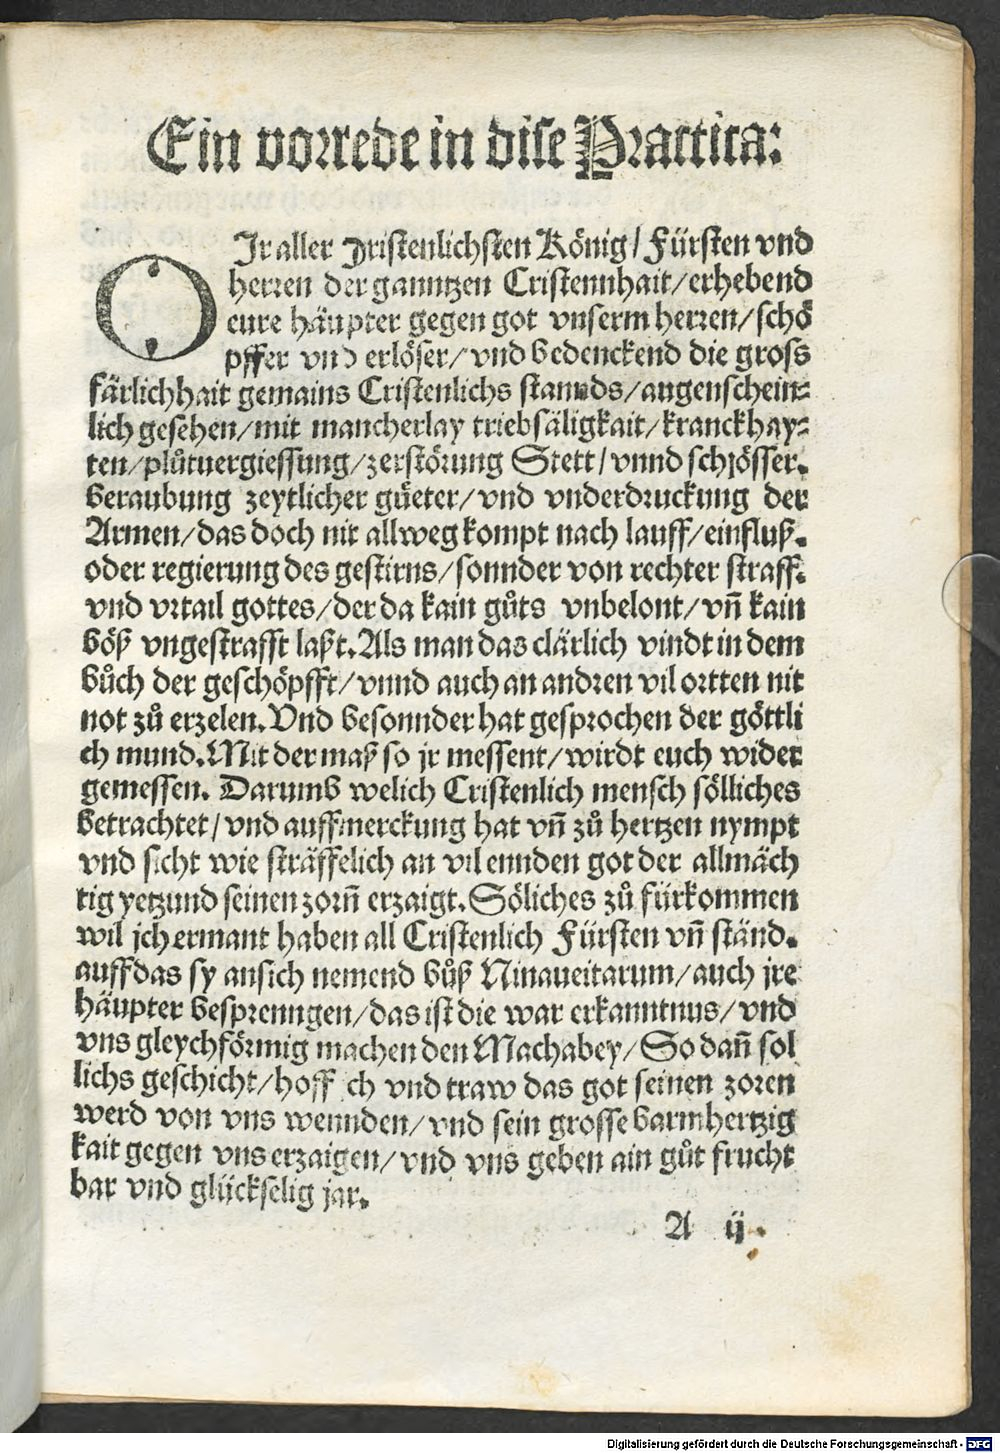 Ein vorrede in dise Practica:
O Ir aller Xristenlichsten König/ Fürsten vnd
herren der ganntzen Cristennhait/ erhebend
eure häupter gegen got vnserm herren/ schö
pffer vnd erlöser/ vnd bedenckend die gross
färlichhait gemains Cristenlichs stannds/ augenschein⸗
lich gesehen/ mit mancherlay triebsäligkait/ kranckhay⸗
ten/ plůtuergiessung/ zerstörung Stett/ vnnd schlösser.
beraubung zeytlicher gůeter/ vnd vnderdruckung der
Armen/ das doch nit allweg kompt nach lauff/ einfluß.
oder regierung des gestirns/ sonnder von rechter straff.
vnd vrtail gottes/ der da kain gůts vnbelont/ vñ kain
böß vngestrafft laßt. Als man das clärlich vindt in dem
bůch der geschöpfft/ vnnd auch an andren vil ortten nit
not zů erzelen. Vnd besonnder hat gesprochen der göttli
ch mund. Mit der maß so jr messent/ wirdt euch wider
gemessen. Darumb welich Cristenlich mensch sölliches
betrachtet/ vnd auffmerckung hat vñ zů hertzen nympt
vnd sicht wie sträffelich an vil ennden got der allmäch
tig yetzund seinen zorñ erzaigt. Söliches zů fürkommen
wil jch ermant haben all Cristenlich Fürsten vñ ständ.
auff das sy an sich nemend bůß Ninaueitarum/ auch jre
häupter besprenngen/ das ist die war erkanntnus/ vnd
vns gleychförmig machen den Machabey/ So dañ sol
lichs geschicht/ hoff ch vnd traw das got seinen zoren
werd von vns wennden/ vnd sein grosse barmhertzig
kait gegen vns erzaigen/ vnd vns geben ain gůt frucht
bar vnd glückselig jar.
A ij.
Digitalisierung gefördert durch die Deutsche Forschungsgemeinschaft - DFG